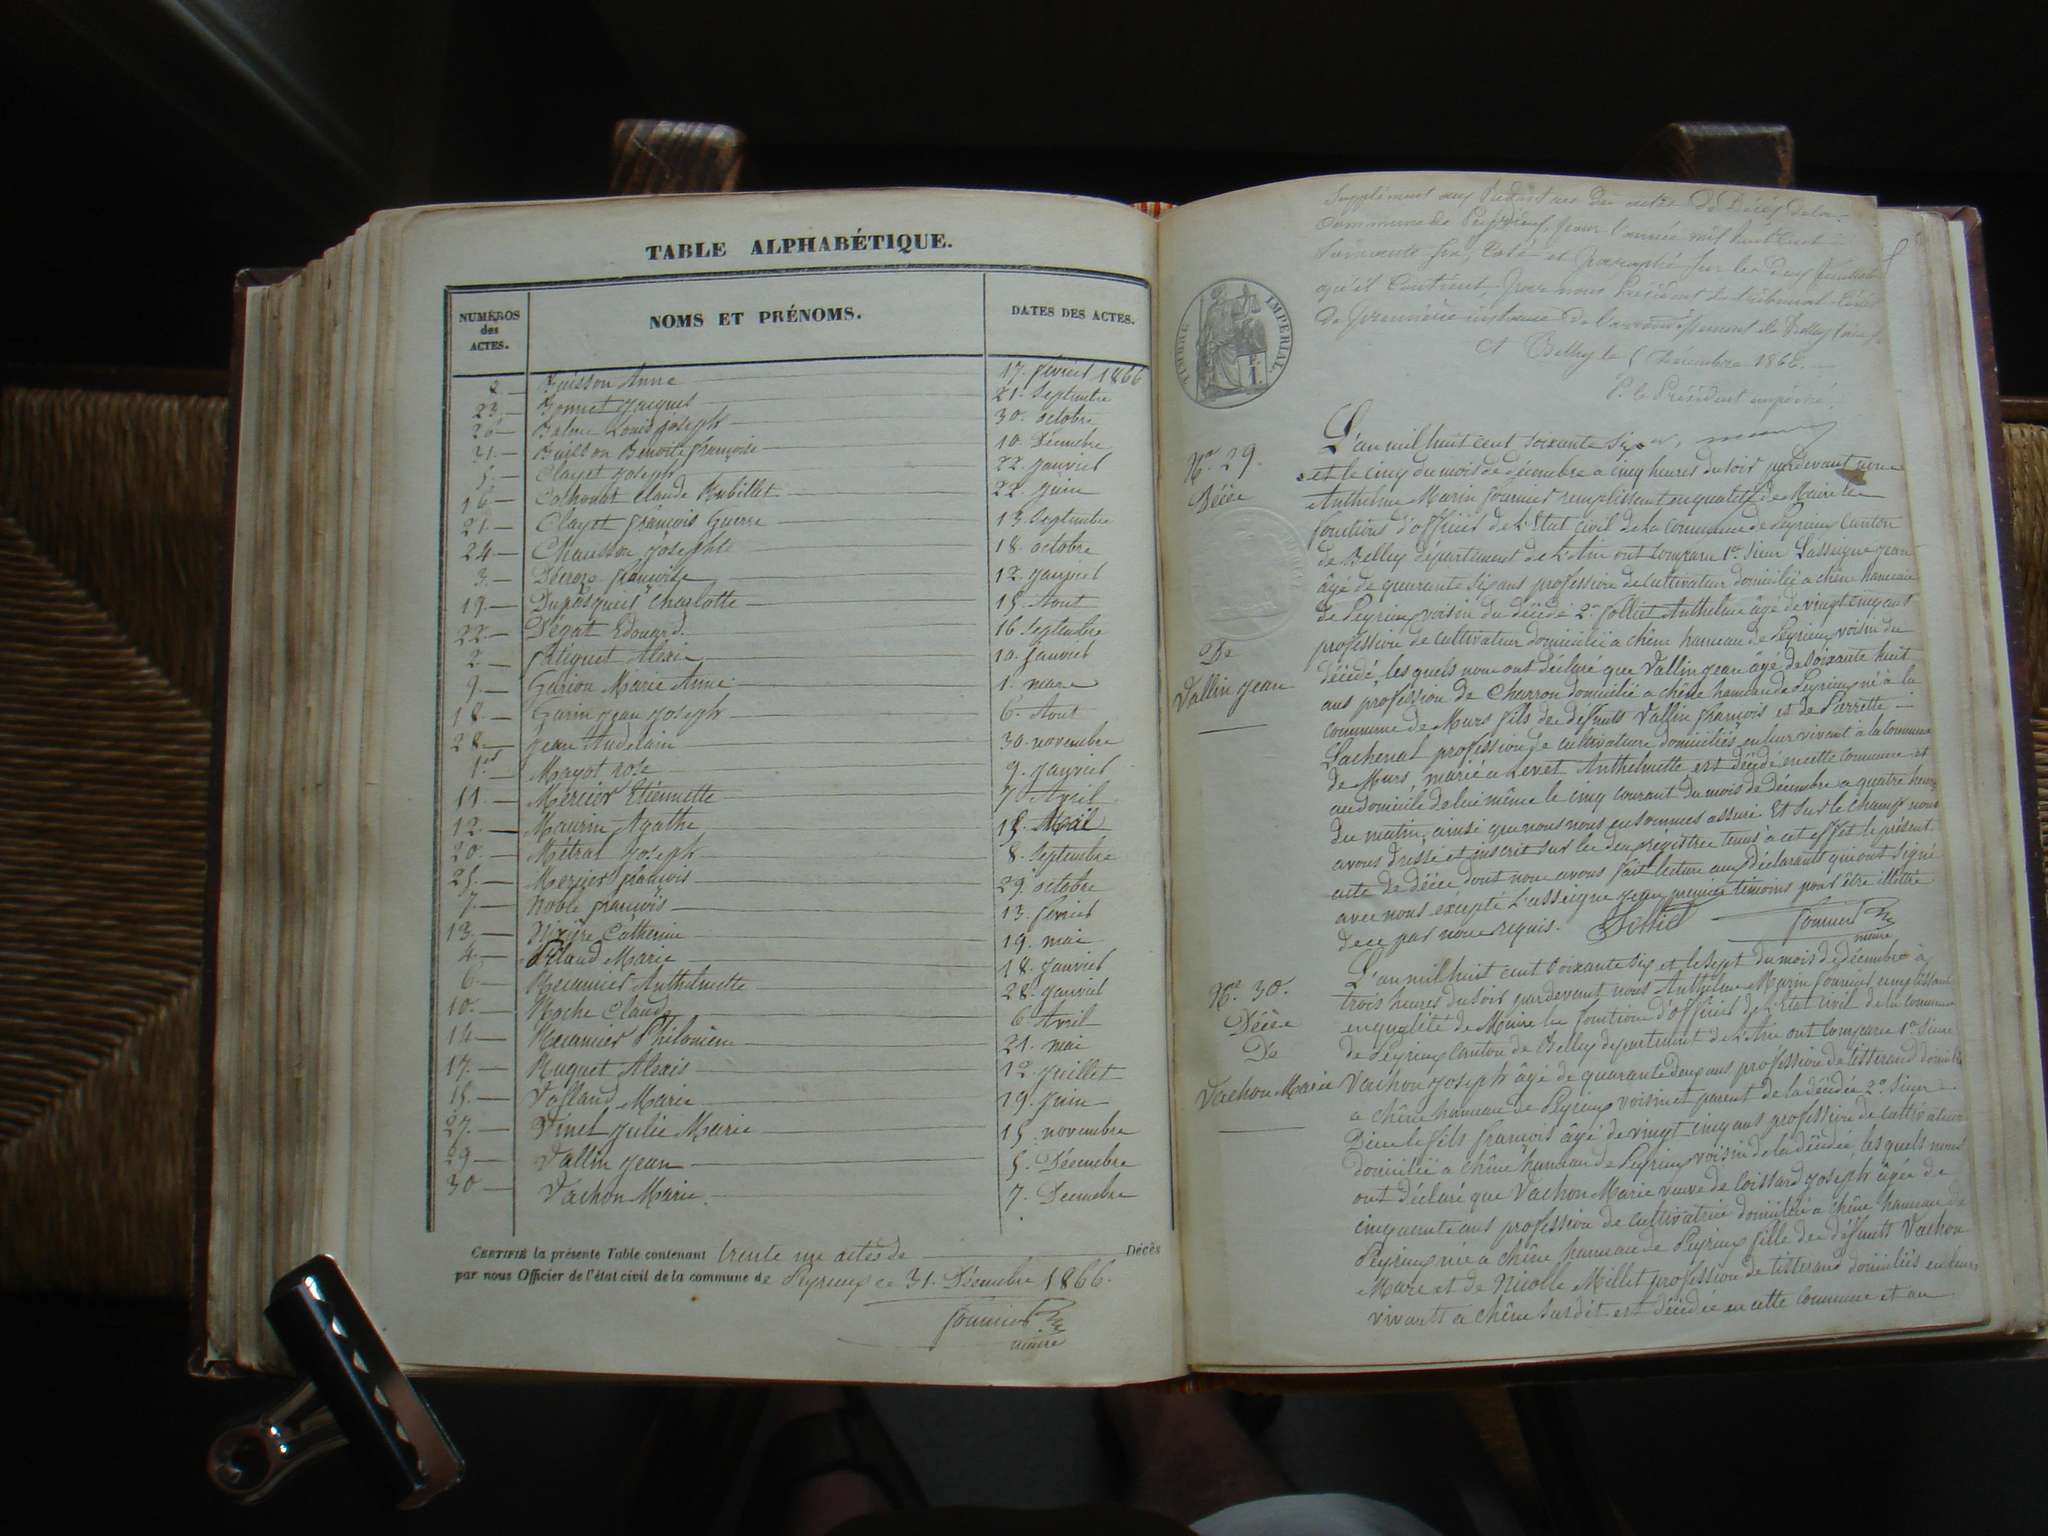 TABLE ALPHABÉTIQUE.
NUMÉROS des ACTES.
NOMS ET PRÉNOMS.
DATES DES ACTES.
Buisson Anne 17. février 1866
23. Bonnet Jacques 21. Septembre
26 Louis Joseph 30. octobre
31. Buisson Benoite Françoise 10. Décembre
5. Clayet Joseph 22. Janvier
16 Claude Rubillet 22. Juin
21. Clayet François Guerre 13. Septembre
24 Chausson Josephte 18. octobre
3. Françoise 12. Janvier
19. Dupasquier Charlotte 15. Aout
22. Dégat Edouard 16. Septembre
2. Alexis 10. Janvier
9. Garion Marie Anne 1. mars
18 Garin Jean Joseph 6. Aout
28 Jean Audelain 30. novembre
1er Mayot rose 9. Janvier
11. Mercier Etiennette 7 Avril
12. Maurin Agathe 15. Mai
20. Métral Joseph 8. Septembre
25. Mercier François 29. octobre
7. Noble François 13. février
13. Catherine 19. mai
4. Marie 18. Janvier
6. Récamier Anthelmette 28. Janvier
10. Roche Claude 6. Avril
14 Récamier Philomène 21. mai
17. Ruguet Alexis 12 Juillet
15. Marie 19. Juin
27. Vinet Julie Marie 15 novembre
29 Vallin Jean 5. Décembre
30 Vachon Marie 7. Décembre
CERTIFIÉ la présente Table contenant trente un actes de Décès
par nous Officier de l'état civil de la commune de Peyrieux ce 31. Décembre 1866.
Fournier
maire
Supplément aux du actes de Décès de la
commune de Peyrieux pour l'année mil huit cent
soixante six, Coté et paraphé sur les deux feuillets
qu'il contient, par nous Président du tribunal Civil
de première instance de l'arrondissement de Belley (ain)
A Belley le 5 Décembre 1866.
P. le Président empêché
TIMBRE IMPÉRIAL.
No. 29.
Décès
De
Vallin Jean
L'an mil huit cent soixante six
et le cinq du mois de décembre a cinq heures du soir pardevant nous
Anthelme Marin Fournier remplissant en qualité de Maire les
fonctions d'officier de L'Etat civil de la commune de Peyrieux Canton
de Belley département de L'Ain ont comparu 1o. Sieur Lasseigne Jean
âgé de quarante six ans profession de cultivateur domicilié a chêne hameau
de Peyrieux voisin du décédé 2o Anthelme âgé de vingt cinq ans
profession de cultivateur domicilié a chêne hameau de Peyrieux voisin du
décédé, les quels nous ont déclaré que Vallin Jean âgé de soixante huit
ans profession de Charron domicilié a chêne hameau de Peyrieux né à la
commune de Murs fils de défunts Vallin François et de Parrette
Lachenal profession de cultivateurs domiciliés en leur vivant à la commune
de Murs, marié a Levet Anthelmette est décédé en cette commune et
au domicile de lui même le cinq courant du mois de décembre a quatre heures
du matin, ainsi que nous nous en sommes assuré Et sur le champ nous
avons dressé et inscrit sur les deux régistres tenus à cet effet le présent
acte de décès dont nous avons fait lecture aux déclarants qui ont signé
avec nous excepté Lasseigne Jean premier témoins pour être illettré
de ce par nous requis.
Fournier
maire
No. 30.
Décès
De
Vachon Marie
L'an mil huit cent soixante six et le sept du mois de décembre à
trois heures du soir pardevant nous Anthelme Marin Fournier remplissant
en qualité de Maire les fonctions d'officier de L'Etat civil de la commune
de Peyrieux Canton de Belley département de L'Ain ont comparu 1o. Sieur
Vachon Joseph âgé de quarante deux ans profession de tisserand domicilié
a chêne hameau de Peyrieux voisin et parent de la décédée 2o. Sieur
fils François âgé de vingt cinq ans profession de cultivateur
domicilié a chêne hameau de Peyrieux voisin de la décédée, les quels nous
ont déclaré que Vachon Marie veuve de Coissard Joseph âgée de
cinquante ans profession de cultivatrice domiciliée a chêne hameau de
Peyrieux née a chêne hameau de Peyrieux fille de défunts Vachon
Marc et de Nicolle Millet profession de tisserand domiciliés en leurs
vivants a chêne susdit est décédée en cette commune et au